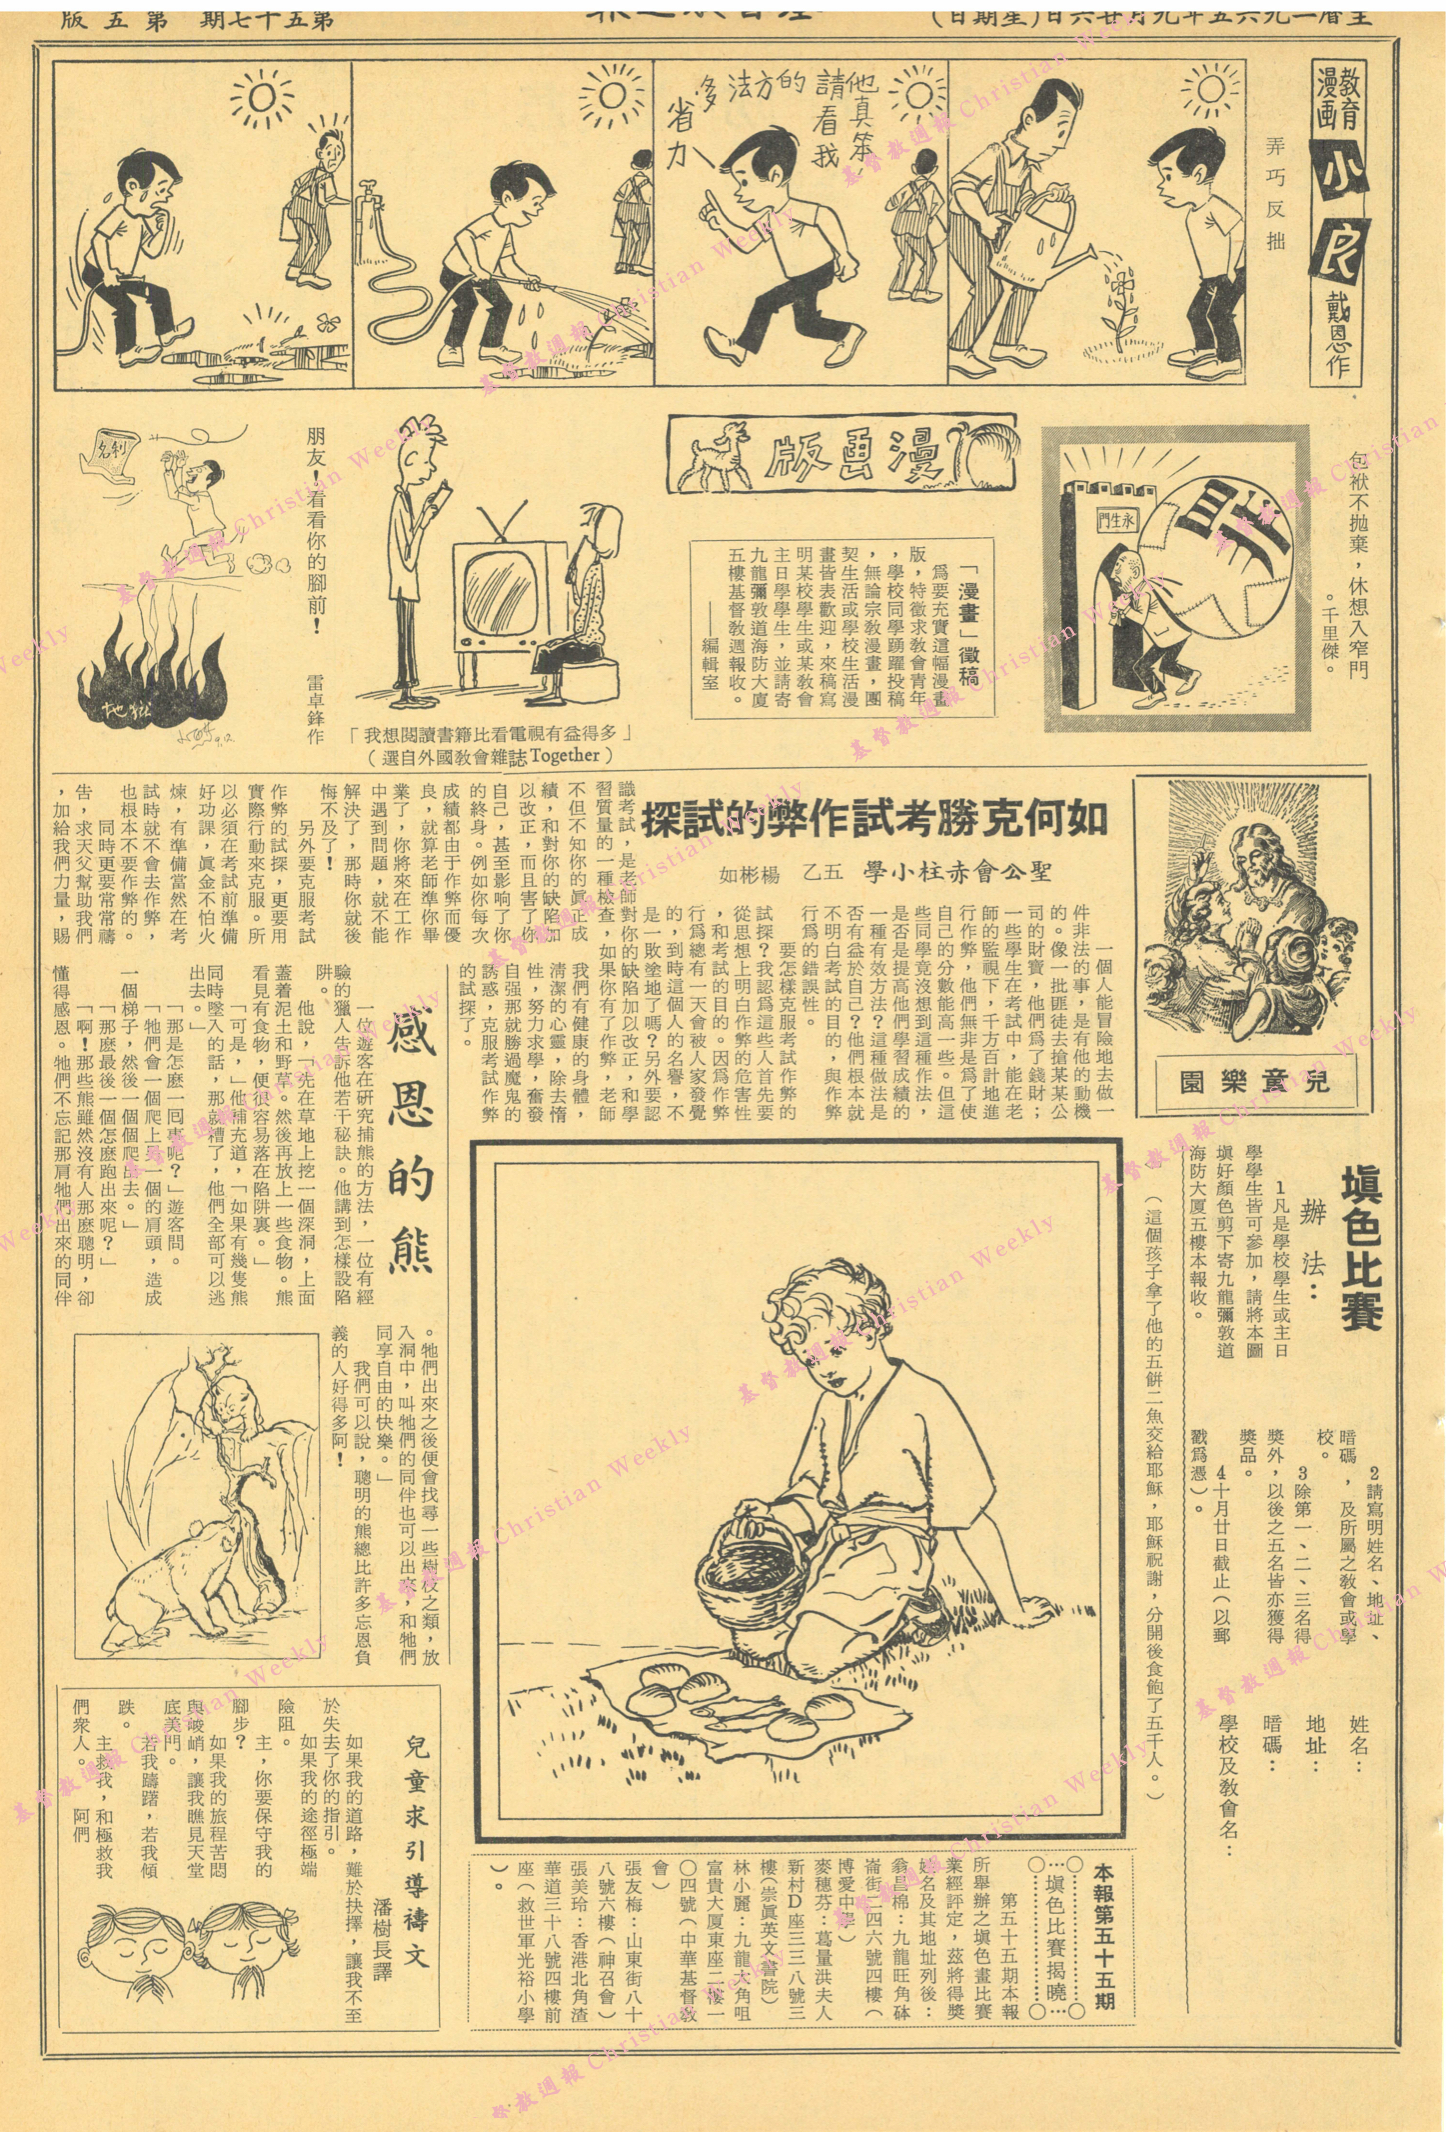 主曆一九六五年九月廿六日(星期日)
第五十七期
第五版
教育漫画
小良
戴恩作
弄巧反拙
他真笨,
請看我
的方法
多省力
包袱不拋棄,休想入窄門
。千里傑。
永生門
罪
漫画版
「漫畫」徵稿
爲要充實這幅漫畫
版,特徵求敎會青年
,學校同學踴躍投稿
,無論宗敎漫畫,團
契生活或學校生活漫
畫皆表歡迎,來稿寫
明某校學生或某敎會
主日學學生,並請寄
九龍彌敦道海防大厦
五樓基督敎週報收。
——編輯室
「我想閱讀書籍比看電視有益得多」
(選自外國敎會雜誌Together)
朋友!看看你的腳前!
雷卓鋒作
名利
地獄
兒童樂園
如何克勝考試作弊的試探
聖公會赤柱小學 五乙 楊彬如
一個人能冒險地去做一
件非法的事,是有他的動機
的。像一批匪徒去搶某某公
司的財寶,他們爲了錢財;
一些學生在考試中,能在老
師的監視下,千方百計地進
行作弊,他們無非是爲了使
自己的分數能高一些。但這
些同學竟沒想到這種作法,
是否是提高他們學習成績的
一種有效方法?這種做法是
否有益於自己?他們根本就
不明白考試的目的,與作弊
行爲的錯誤性。
要怎樣克服考試作弊的
試探?我認爲這些人首先要
從思想上明白作弊的危害性
,和考試的目的。因爲作弊
行爲總有一天會被人家發覺
的,到時這個人的名譽,不
是一敗塗地了嗎?另外要認
識考試,是老師對你的缺陷加以改正,和學
習質量的一種檢查,如果你有了作弊,老師
不但不知你的眞正成
績,和對你的缺陷加
以改正,而且害了你
自己,甚至影响了你
的終身。例如你每次
成績都由于作弊而優
良,就算老師準你畢
業了,你將來在工作
中遇到問題,就不能
解決了,那時你就後
悔不及了!
另外要克服考試
作弊的試探,更要用
實際行動來克服。所
以必須在考試前準備
好功課,眞金不怕火
煉,有準備當然在考
試時就不會去作弊,
也根本不要作弊的。
同時更要常常禱
告,求天父幫助我們
,加給我們力量,賜
我們有健康的身體,
清潔的心靈,除去惰
性,努力求學,奮發
自强那就勝過魔鬼的
誘惑,克服考試作弊
的試探了。
感恩的熊
一位遊客在研究捕熊的方法,一位有經
驗的獵人告訴他若干秘訣。他講到怎樣設陷
阱。
他說,「先在草地上挖一個深洞,上面
蓋着泥土和野草。然後再放上一些食物。熊
看見有食物,便很容易落在陷阱裏。」
「可是,」他補充道,「如果有幾隻熊
同時墜入的話,那就糟了,他們全部可以逃
出去。」
「那是怎麼一囘事呢?」遊客問。
「牠們會一個爬上另一個的肩頭,造成
一個梯子,然後一個個爬出去。」
「那麼最後一個怎麼跑出來呢?」
「啊!那些熊雖然沒有人那麽聰明,卻
懂得感恩。牠們不忘記那肩牠們出來的同伴
。牠們出來之後便會找尋一些樹枝之類,放
入洞中,叫牠們的同伴也可以出來,和牠們
同享自由的快樂。」
我們可以說,聰明的熊總比許多忘恩負
義的人好得多阿!
塡色比賽
辦法:
1凡是學校學生或主日
學學生皆可參加,請將本圖
塡好顏色剪下寄九龍彌敦道
海防大厦五樓本報收。
2請寫明姓名、地址、
暗碼,及所屬之敎會或學
校。
3除第一、二、三名得
獎外,以後之五名皆亦獲得
獎品。
4十月廿日截止(以郵
戳爲憑)。
姓名:
地址:
暗碼:
學校及敎會名:
(這個孩子拿了他的五餅二魚交給耶穌,耶穌祝謝,分開後食飽了五千人。)
本報第五十五期
塡色比賽揭曉
第五十五期本報
所舉辦之塡色畫比賽
業經評定,茲將得獎
姓名及其地址列後:
翁昌棉:九龍旺角砵
崙街二四六號四樓(
博愛中學)
麥穗芬:葛量洪夫人
新村D座三三八號三
樓(崇眞英文書院)
林小麗:九龍大角咀
富貴大厦東座二樓一
〇四號(中華基督敎
會)
張友梅:山東街八十
八號六樓(神召會)
張美玲:香港北角渣
華道三十八號四樓前
座(救世軍光裕小學
)。
兒童求引導禱文
潘樹長譯
如果我的道路,難於抉擇,讓我不至
於失去了你的指引。
如果我的途徑極端
險阻。
主,你要保守我的
腳步?
如果我的旅程苦悶
與峻峭,讓我瞧見天堂
底美門。
若我躊躇,若我傾
跌。
主救我,和極救我
們衆人。 阿們
基督教週報 Christian Weekly